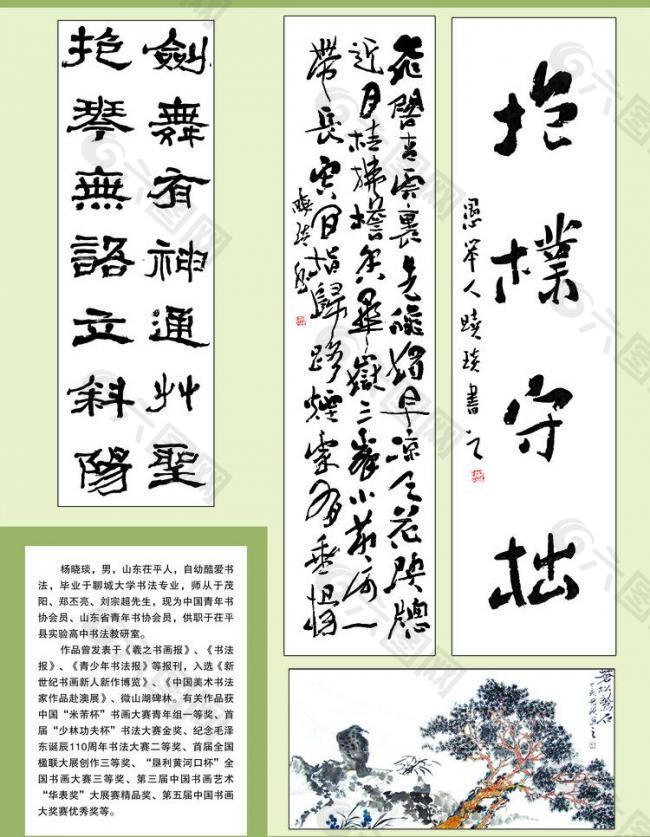 劍舞有神通艸聖
抱琴無語立斜陽
飛閣青雲裏先秋獨早涼天花映窗
近月桂拂檐香華嶽三峯小黃河一
帶長空間指歸路煙處有垂楊
曉琰書
抱樸守拙
曉琰書之
杨晓琰,男,山东茌平人,自幼酷爱书
法,毕业于聊城大学书法专业,师从于茂
阳、郑丕亮、刘宗超先生,现为中国青年书
协会员、山东省青年书协会员,供职于茌平
县实验高中书法教研室。
作品曾发表于《羲之书画报》、《书法
报》、《青少年书法报》等报刊,入选《新
世纪书画新人新作博览》、《中国美术书法
家作品赴澳展》、微山湖碑林。有关作品获
中国“米芾杯”书画大赛青年组一等奖、首
届“少林功夫杯”书法大赛金奖、纪念毛泽
东诞辰110周年书法大赛二等奖、首届全国
楹联大展创作三等奖、“垦利黄河口杯”全
国书画大赛三等奖、第三届中国书画艺术
“华表奖”大展赛精品奖、第五届中国书画
大奖赛优秀奖等。